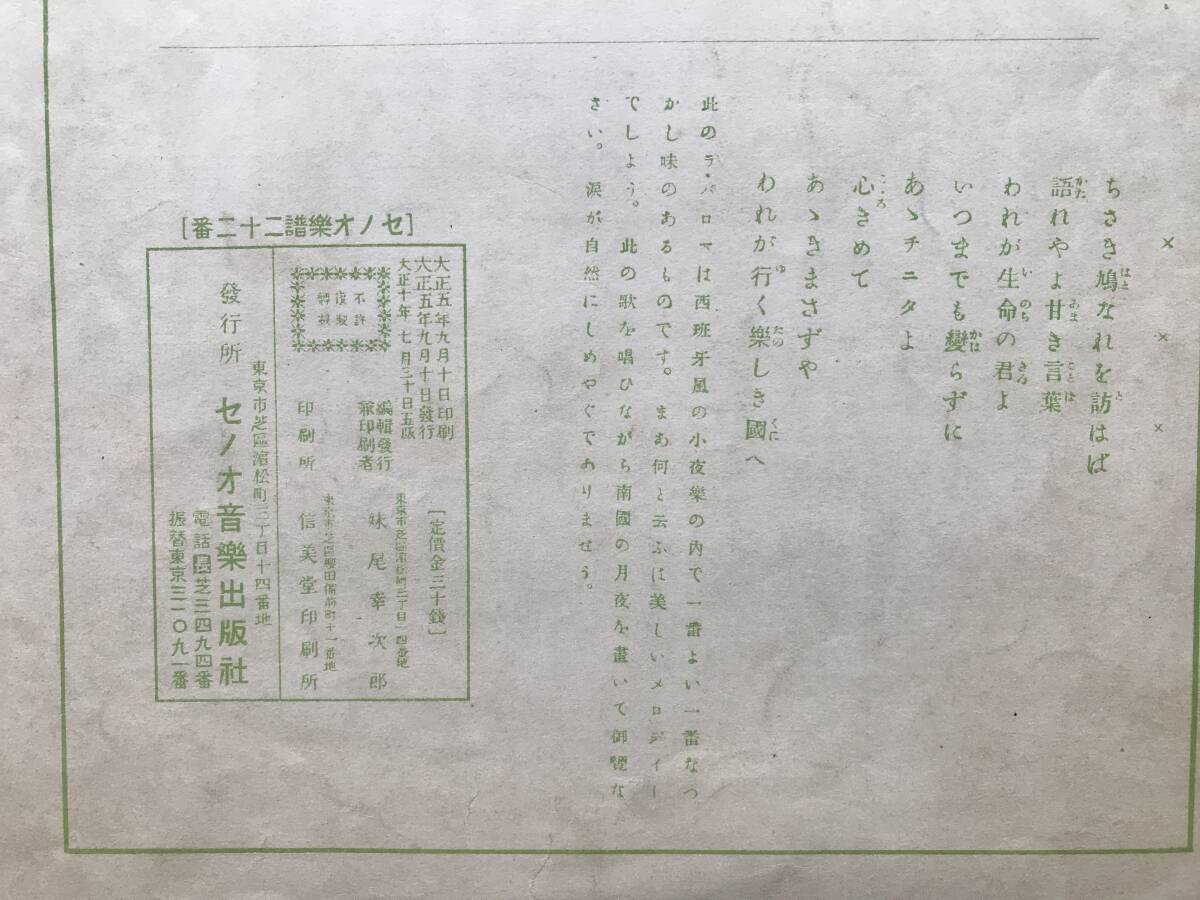 ちさき鳩なれを訪はば
語れやよ甘き言葉
われが生命の君よ
いつまでも變らずに
あゝチニタよ
心きめて
あゝきまさずや
われが行く樂しき國へ
此のラ・パロマは西班牙風の小夜樂の内で一番よい一番なつ
かし味のあるものです。まあ何と云ふは美しいメロディー
でしよう。此の歌を唱ひながら南國の月夜を畫いて御覽な
さい。涙が自然にしめやぐでありませう。
[セノオ樂譜二十二番]
大正五年九月十日印刷
大正五年九月十日發行
大正十年七月三十日五版
[定價金三十錢]
不許
複製
轉載
編輯發行
兼印刷者
東京市芝區濱松町三丁目一四番地
妹尾幸次郎
東京市芝區櫻田備前町十一番地
印刷所 信美堂印刷所
東京市芝區濱松町三丁目十四番地
發行所 セノオ音樂出版社
電話長芝三四九四番
振替東京三一〇九一番